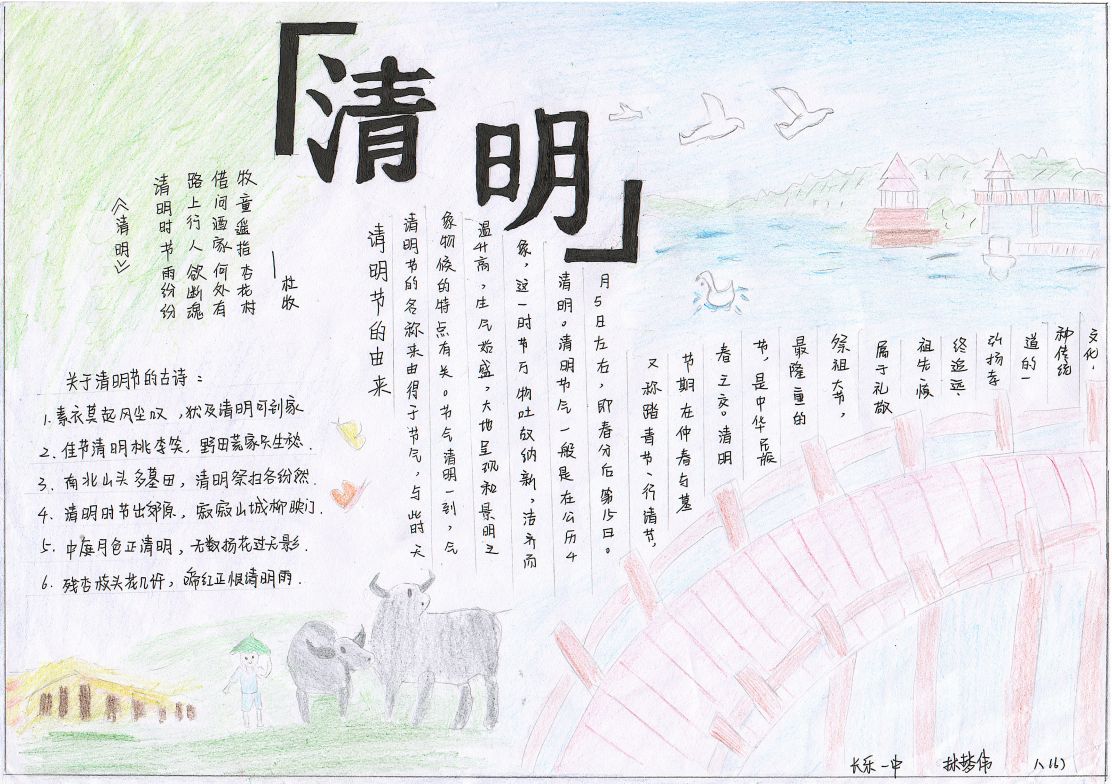 「清明」
《清明》
清明时节雨纷纷
路上行人欲断魂
借问酒家何处有
牧童遥指杏花村
——杜牧
关于清明节的古诗：
1.素衣莫起风尘叹，犹及清明可到家
2.佳节清明桃李笑，野田荒冢只生愁.
3.南北山头多墓田，清明祭扫各纷然.
4.清明时节出郊原，寂寂山城柳映门.
5.中庭月色正清明，无数扬花过无影.
6.残杏枝头花几许，啼红正恨清明雨.
清明节的由来
清明节的名称来由得于节气，与此时天
象物候的特点有关。节气清明一到，气
温升高，生气始盛，大地呈现和景明之
象，这一时节万物吐故纳新，洁齐而
清明。清明节气一般是在公历4
月5日左右，即春分后第15日。
又称踏青节、行清节，
节期在仲春与墓
春之交。清明
节，是中华民族
最隆重的
祭祖大节，
属于礼敬
祖先、慎
终追远、
弘扬孝
道的一
种传统
文化.
长乐一中 林梦伟 八(6)